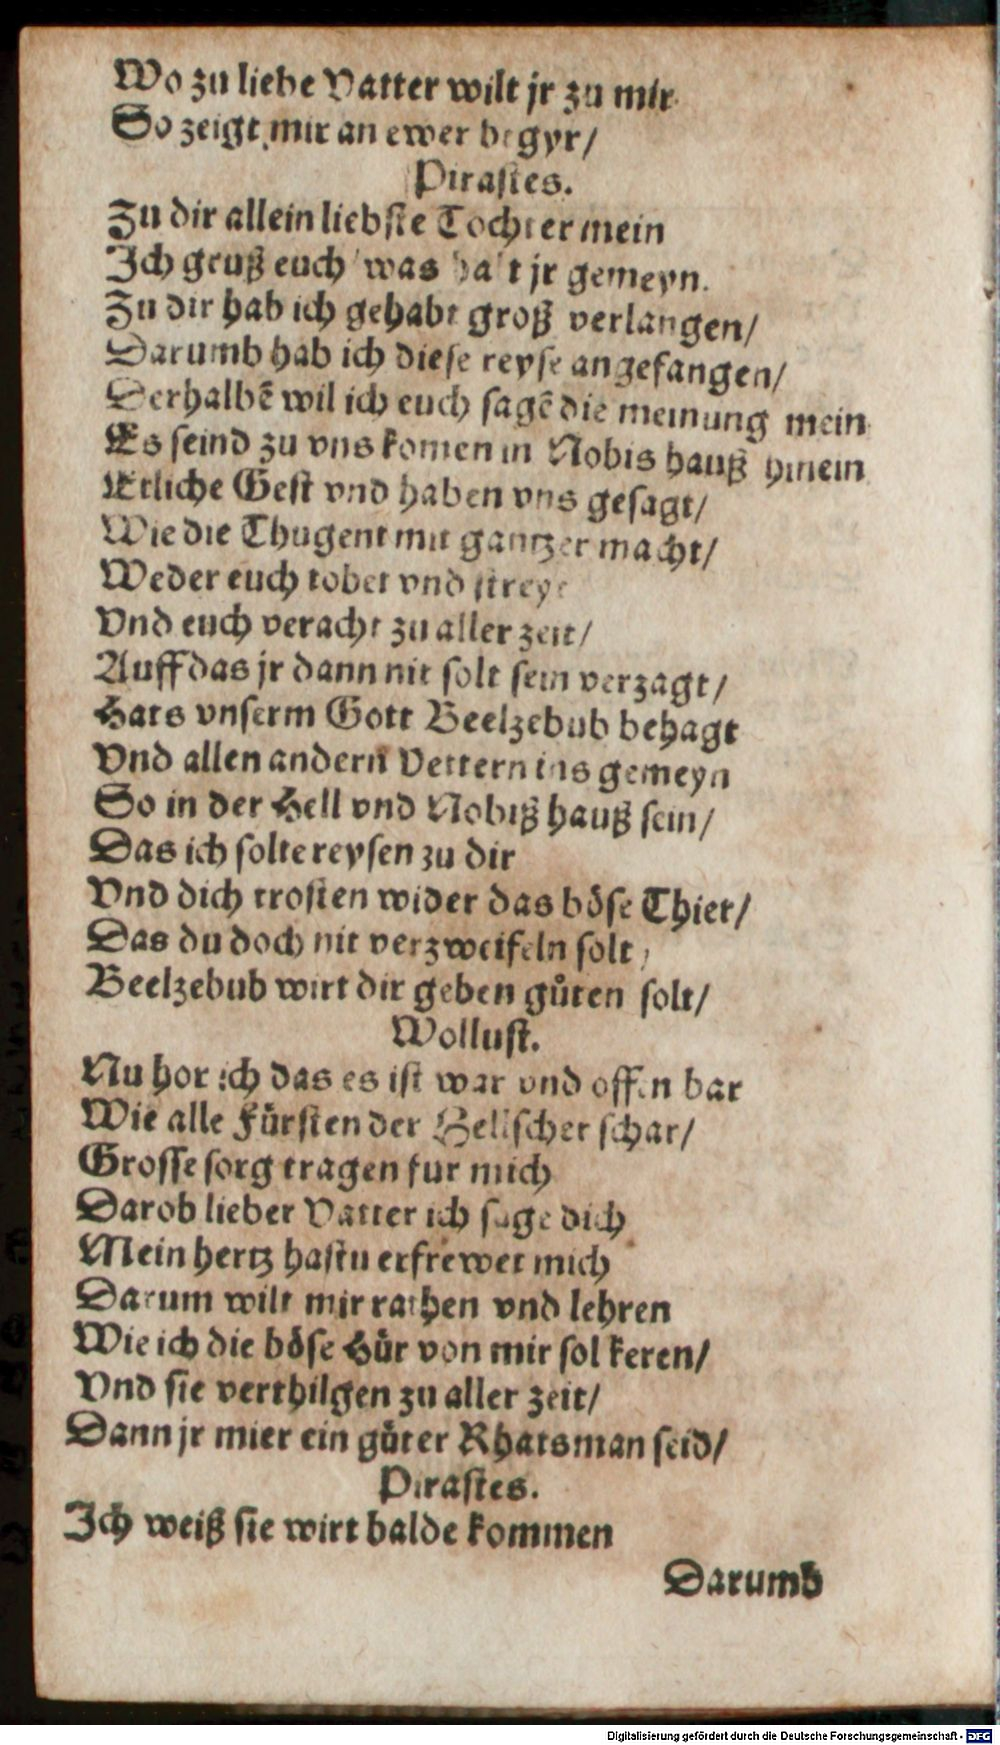 Wo zu liebe Vatter wilt jr zu mir
So zeigt mir an ewer begyr/
Pirastes.
Zu dir allein liebste Tochter mein
Ich gruß euch was ha t jr gemeyn.
Zu dir hab ich gehabt groß verlangen/
Darumb hab ich diese reyse angefangen/
Derhalbẽ wil ich euch sagẽ die meinung mein
Es seind zu vns komen in Nobis hauß hinein
Etliche Gest vnd haben vns gesagt/
Wie die Thugent mit gantzer macht/
Weder euch tobet vnd streyt
Vnd euch veracht zu aller zeit/
Auff das jr dann nit solt sein verzagt/
Hats vnserm Gott Beelzebub behagt
Vnd allen andern Vettern ins gemeyn
So in der Hell vnd Nobiß hauß sein/
Das ich solte reysen zu dir
Vnd dich trosten wider das böse Thier/
Das du doch nit verzweifeln solt /
Beelzebub wirt dir geben gůten solt/
Wollust.
Nu hor ich das es ist war vnd offen bar
Wie alle Fürsten der Hellscher schar/
Grosse sorg tragen fur mich
Darob lieber Vatter ich sage dich
Mein hertz hastu erfrewet mich
Darum wilt mir rathen vnd lehren
Wie ich die böse Hůr von mir sol keren/
Vnd sie verthilgen zu aller zeit/
Dann jr mier ein gůter Rhatsman seid/
Pirastes.
Ich weiß sie wirt balde kommen
Darumb
Digitalisierung gefördert durch die Deutsche Forschungsgemeinschaft - DFG